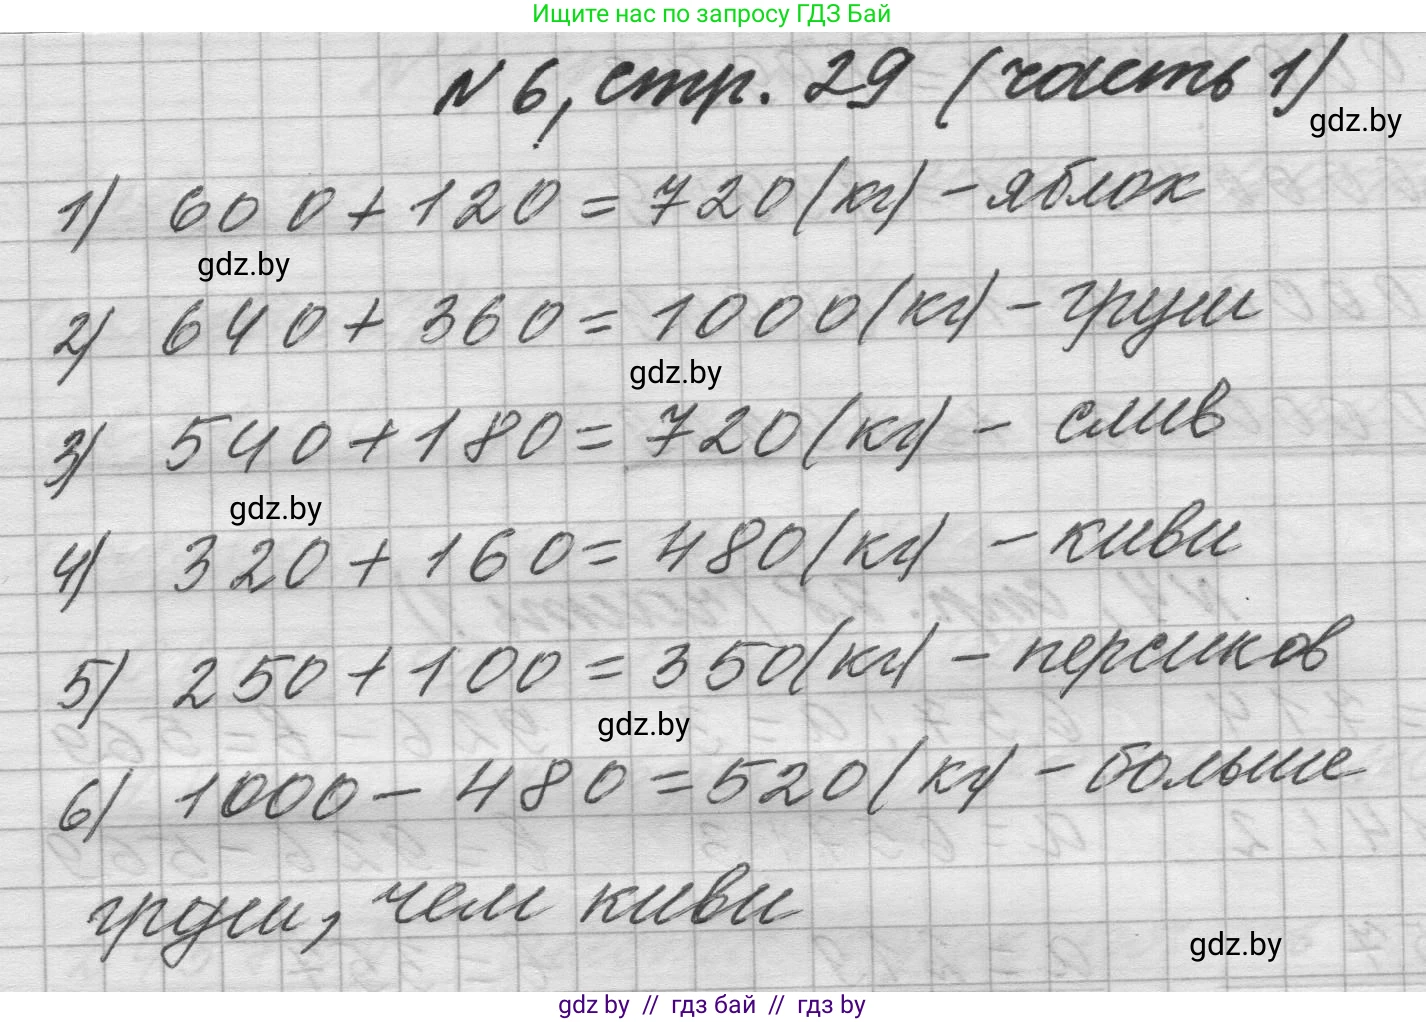 Ищите нас по запросу ГДЗ Бай
N 6, стр. 29 (часть 1)
gdz.by
1) 600 + 120 = 720 (кг) - яблок
gdz.by
2) 640 + 360 = 1000 (кг) - груш
gdz.by
3) 540 + 180 = 720 (кг) - слив
gdz.by
4) 320 + 160 = 480 (кг) - киви
5) 250 + 100 = 350 (кг) - персиков
gdz.by
6) 1000 - 480 = 520 (кг) - больше
груш, чем киви
gdz.by
gdz by // гдз бай // гдз by